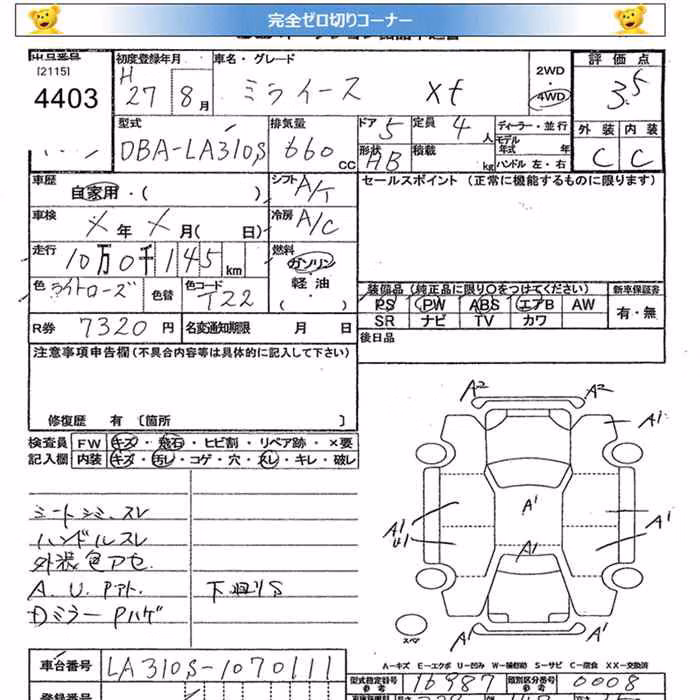 完全ゼロ切りコーナー
出品番号 初度登録年月 車名・グレード 2WD 評価点
[2115] H
4403 27 8月 ミライース Xf 4WD 3.5
型式 排気量 ドア 5 定員 4人 ディーラー・並行 外装 内装
DBA-LA310S 660cc 形状 HB 積載 kg モデル年式 年 ハンドル 左・右 C C
車歴 自家用・( ) シフト A/T セールスポイント (正常に機能するものに限ります)
車検 X年 X月( 日) 冷房 A/C
走行 10万0千145km 燃料 ガソリン
軽油
( ・ )
色 ライトローズ 色替 色コード T22 装備品 (純正品に限り〇をつけてください) 新車保証書
PS PW ABS エアB AW 有・無
R券 7320円 名変通知期限 月 日 SR ナビ TV カワ
後日品
注意事項申告欄 (不具合内容等は具体的に記入して下さい)
修復歴 有 [箇所 ]
検査員 FW キズ・飛石・ヒビ割・リペア跡・×要
記入欄 内装 キズ・汚レ・コゲ・穴・スレ・キレ・破レ
シートシミ、スレ
ハンドルスレ
外装色アセ
A.U.Pアト. 下回りS
Dミラー Pハゲ
A2 A2
A1
A1
A1
U1
A1
A1
A1 A1
スペア
A-キズ E-エクボ U-凹み W-補修跡 S-サビ C-腐食 XX-交換済
車台番号 LA310S-1070111 型式指定番号 参考 16987 類別区分番号 参考 0008
登録番号